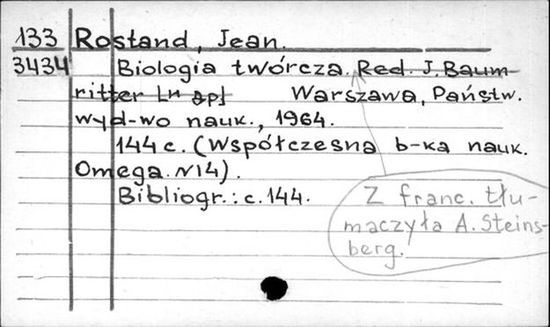 133 Rostand, Jean.
3434 Biologia twórcza. Red. J. Baum-
ritter [и др] Warszawa, Państw.
wyd-wo nauk., 1964.
144 c. (Współczesna b-ka nauk.
Omega. N14).
Bibliogr.: c. 144.
Z franc. tłu-
maczyła A. Steins-
berg.